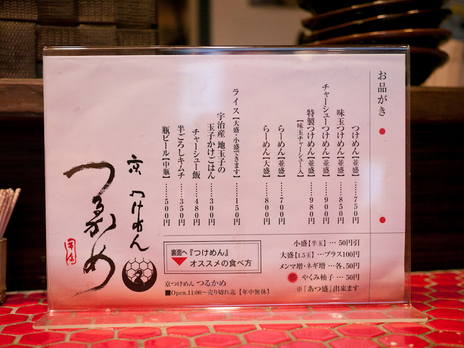 お品がき
つけめん【並盛】…七五〇円
味玉つけめん【並盛】…八五〇円
チャーシューつけめん【並盛】…九〇〇円
特製つけめん【並盛】…九八〇円
【味玉チャーシュー入】
らーめん【並盛】…七〇〇円
らーめん【大盛】…八〇〇円
ライス【大盛・小盛できます】…一五〇円
宇治産 地玉子の
玉子かけごはん…三八〇円
チャーシュー飯…四八〇円
半ごろしキムチ…三五〇円
瓶ビール【中瓶】…五〇〇円
小盛【半玉】…50円引
大盛【1.5玉】…プラス100円
メンマ増・ネギ増…各、50円
やくみ柚子…50円
※「あつ盛」出来ます
裏面へ
『つけめん』
オススメの食べ方
京つけめん つるかめ
■Open.11:00～売り切れ迄【年中無休】
京 つけめん
つるかめ